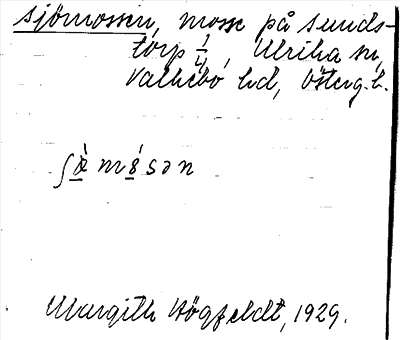 Sjömossen, mosse på Sunds-
torp 1/4, Ulrika sn,
Valkebo hd, Österg. l.
Margith Högfeldt, 1929.